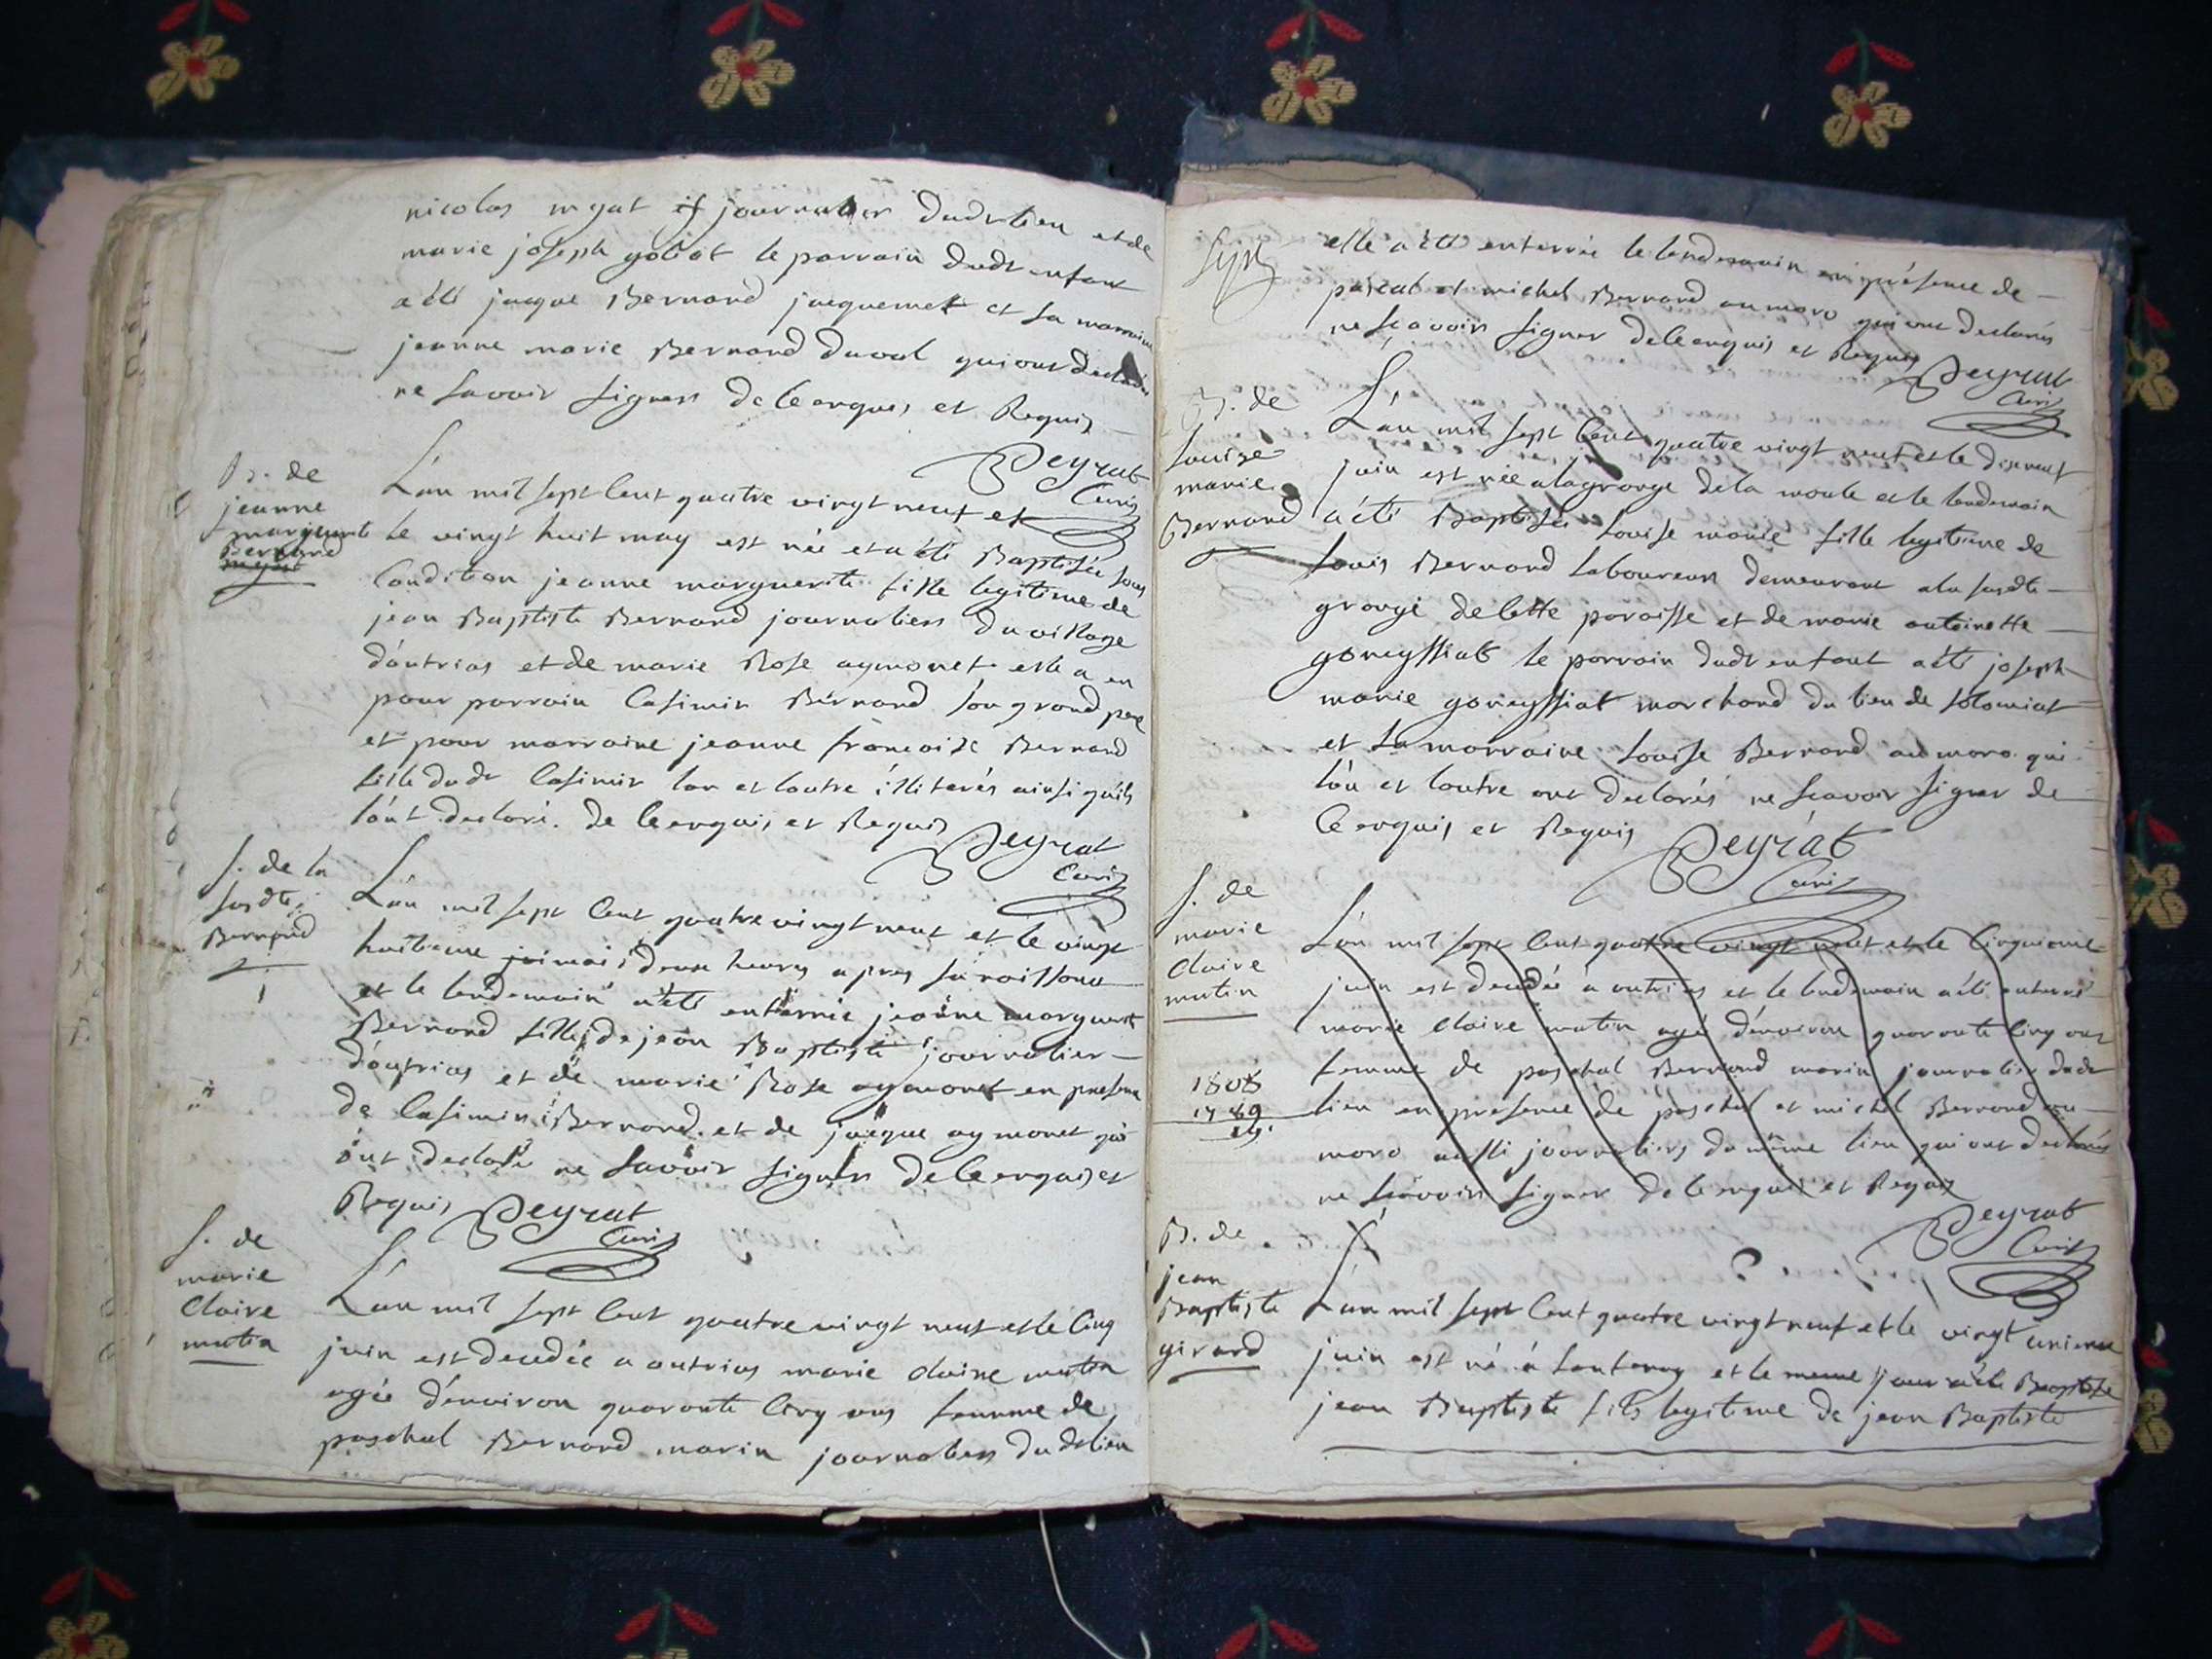 nicolas mgat journalier dudt lieu et de
marie joseph goliot le parrain dudt enfant
a été jacque Bernard jacquemet et sa marraine
jeanne marie Bernard duval qui ont declarés
ne savoir signer de ce enquis et Requis
Peyrat
Curé
B. de
jeanne
marguerite
Bernard
L'an mil sept cent quatre vingt neuf et
le vingt huit may est née et a été Baptisée sous
Condition jeanne marguerite fille legitime de
jean Baptiste Bernard journalier du village
d'outrias et de marie Rose aymonet elle a eu
pour parrain Casimir Bernard son grand pere
et pour marraine jeanne francoise Bernard
fille dudt Casimir l'un et l'autre illiterés ainsi qu'ils
l'ont declaré. de ce enquis et Requis
Peyrat
Curé
S. de la
susdte
Bernard
L'an mil sept cent quatre vingt neuf et le vingt
huitieme mai deux heures apres sa naissance
et le lendemain a été enterrée jeanne marguerite
Bernard fille de jean Baptiste journalier
d'outrias et de marie Rose aymonet en presence
de Casimir Bernard et de jacque aymonet qui
ont declaré ne savoir signer de ce enquis et
Requis Peyrat
Curé
S. de
marie
claire
mutin
L'an mil sept cent quatre vingt neuf et le cinq
juin est decedée a outrias marie claire mutin
agée d'environ quarante cinq ans femme de
paschal Bernard marin journalier dudt lieu
elle a été enterrée le lendemain en présence de
pascal et michel Bernard au maro qui ont declarés
ne sçavoir signer de ce enquis et Requis
Peyrat
Curé
B. de
Louise
marie
Bernard
L'an mil sept cent quatre vingt neuf et le dixneuf
juin est née a la grange de la moule et le lendemain
a été Baptisée Louise marie fille legitime de
Louis Bernard laboureur demeurant a la susdte
grange de cette paroisse et de marie antoinette
goneyssiat le parrain dudt enfant a été joseph
marie goneyssiat marchand du lieu de solomiat
et la marraine Louise Bernard au maro qui
l'un et l'autre ont declarés ne scavoir signer de
ce enquis et Requis Peyrat
Curé
S. de
marie
claire
mutin
L'an mil sept cent quatre vingt neuf et le cinquieme
juin est decedée a outrias et le lendemain a été enterré
marie claire mutin agée d'environ quarante cinq ans
femme de paschal Bernard marin journalier dudt
1808
1789
lieu en presence de paschal et michel Bernard au
maro aussi journaliers du même lieu qui ont declarés
ne sçavoir signer de ce enquis et Requis
Peyrat
Curé
B. de
jean
Baptiste
girard
L'an mil sept cent quatre vingt neuf et le vingt unieme
juin est né a lantenay et le meme jour a été Baptisé
jean Baptiste fils legitime de jean Baptiste